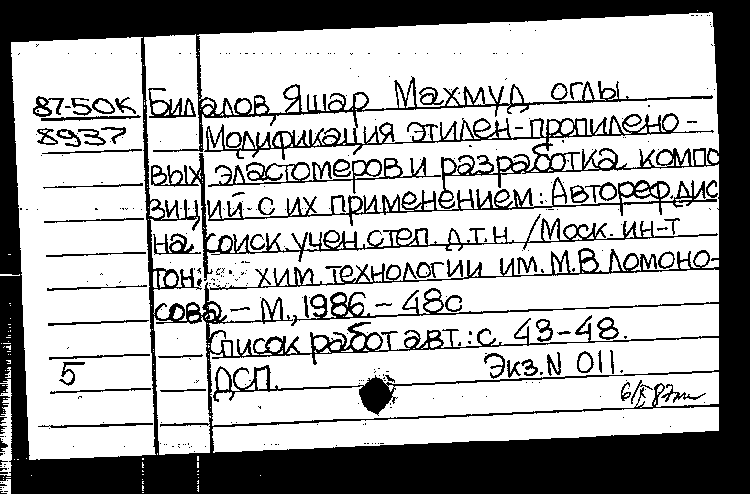 87-50К Билалов, Яшар Махмуд оглы.
8937 Модификация этилен-пропилено-
вых эластомеров и разработка компо
зиций с их применением: Автореф. дис
на соиск. учен. степ. д.т.н. / Моск. ин-т
тон. хим. технологии им. М.В. Ломоно-
сова. - М., 1986. - 48с
Список работ авт.: с. 43-48.
5 ДСП. Экз. N 011.